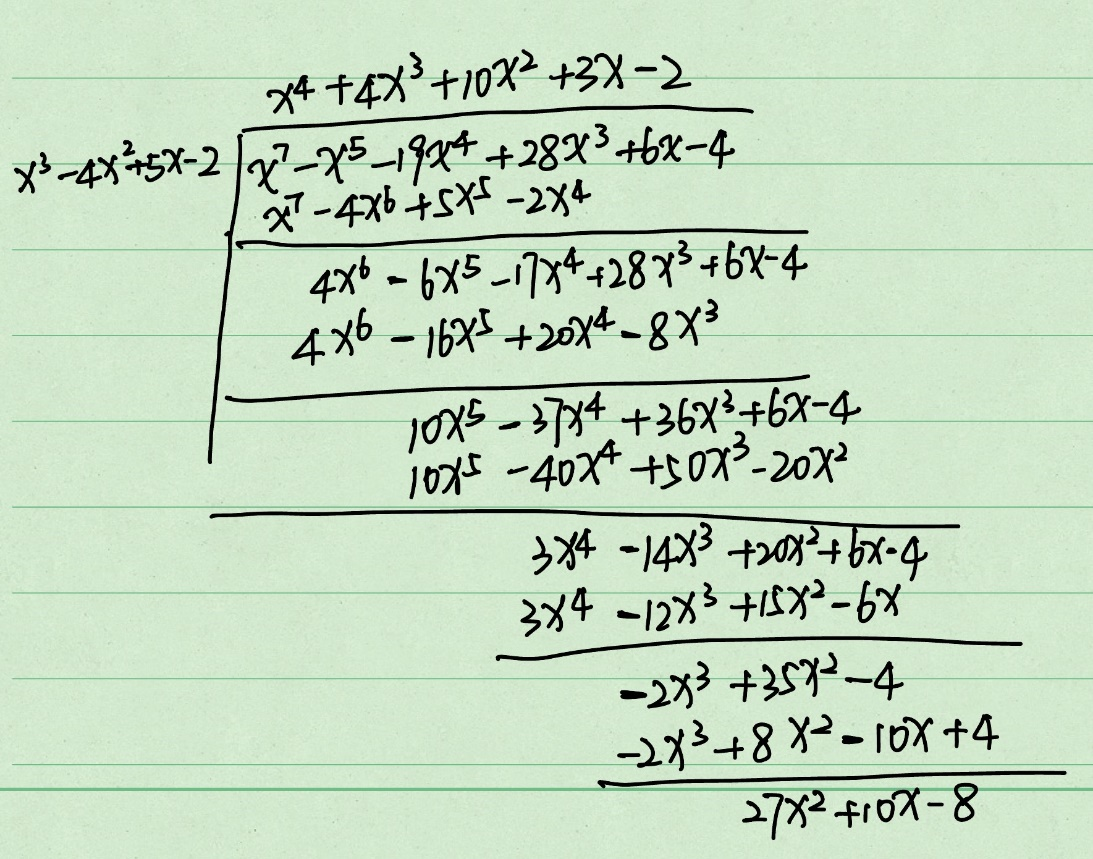 x⁴ + 4x³ + 10x² + 3x - 2
x³ - 4x² + 5x - 2 x⁷ - x⁵ - 19x⁴ + 28x³ + 6x - 4
x⁷ - 4x⁶ + 5x⁵ - 2x⁴
4x⁶ - 6x⁵ - 17x⁴ + 28x³ + 6x - 4
4x⁶ - 16x⁵ + 20x⁴ - 8x³
10x⁵ - 37x⁴ + 36x³ + 6x - 4
10x⁵ - 40x⁴ + 50x³ - 20x²
3x⁴ - 14x³ + 20x² + 6x - 4
3x⁴ - 12x³ + 15x² - 6x
-2x³ + 35x² - 4
-2x³ + 8x² - 10x + 4
27x² + 10x - 8